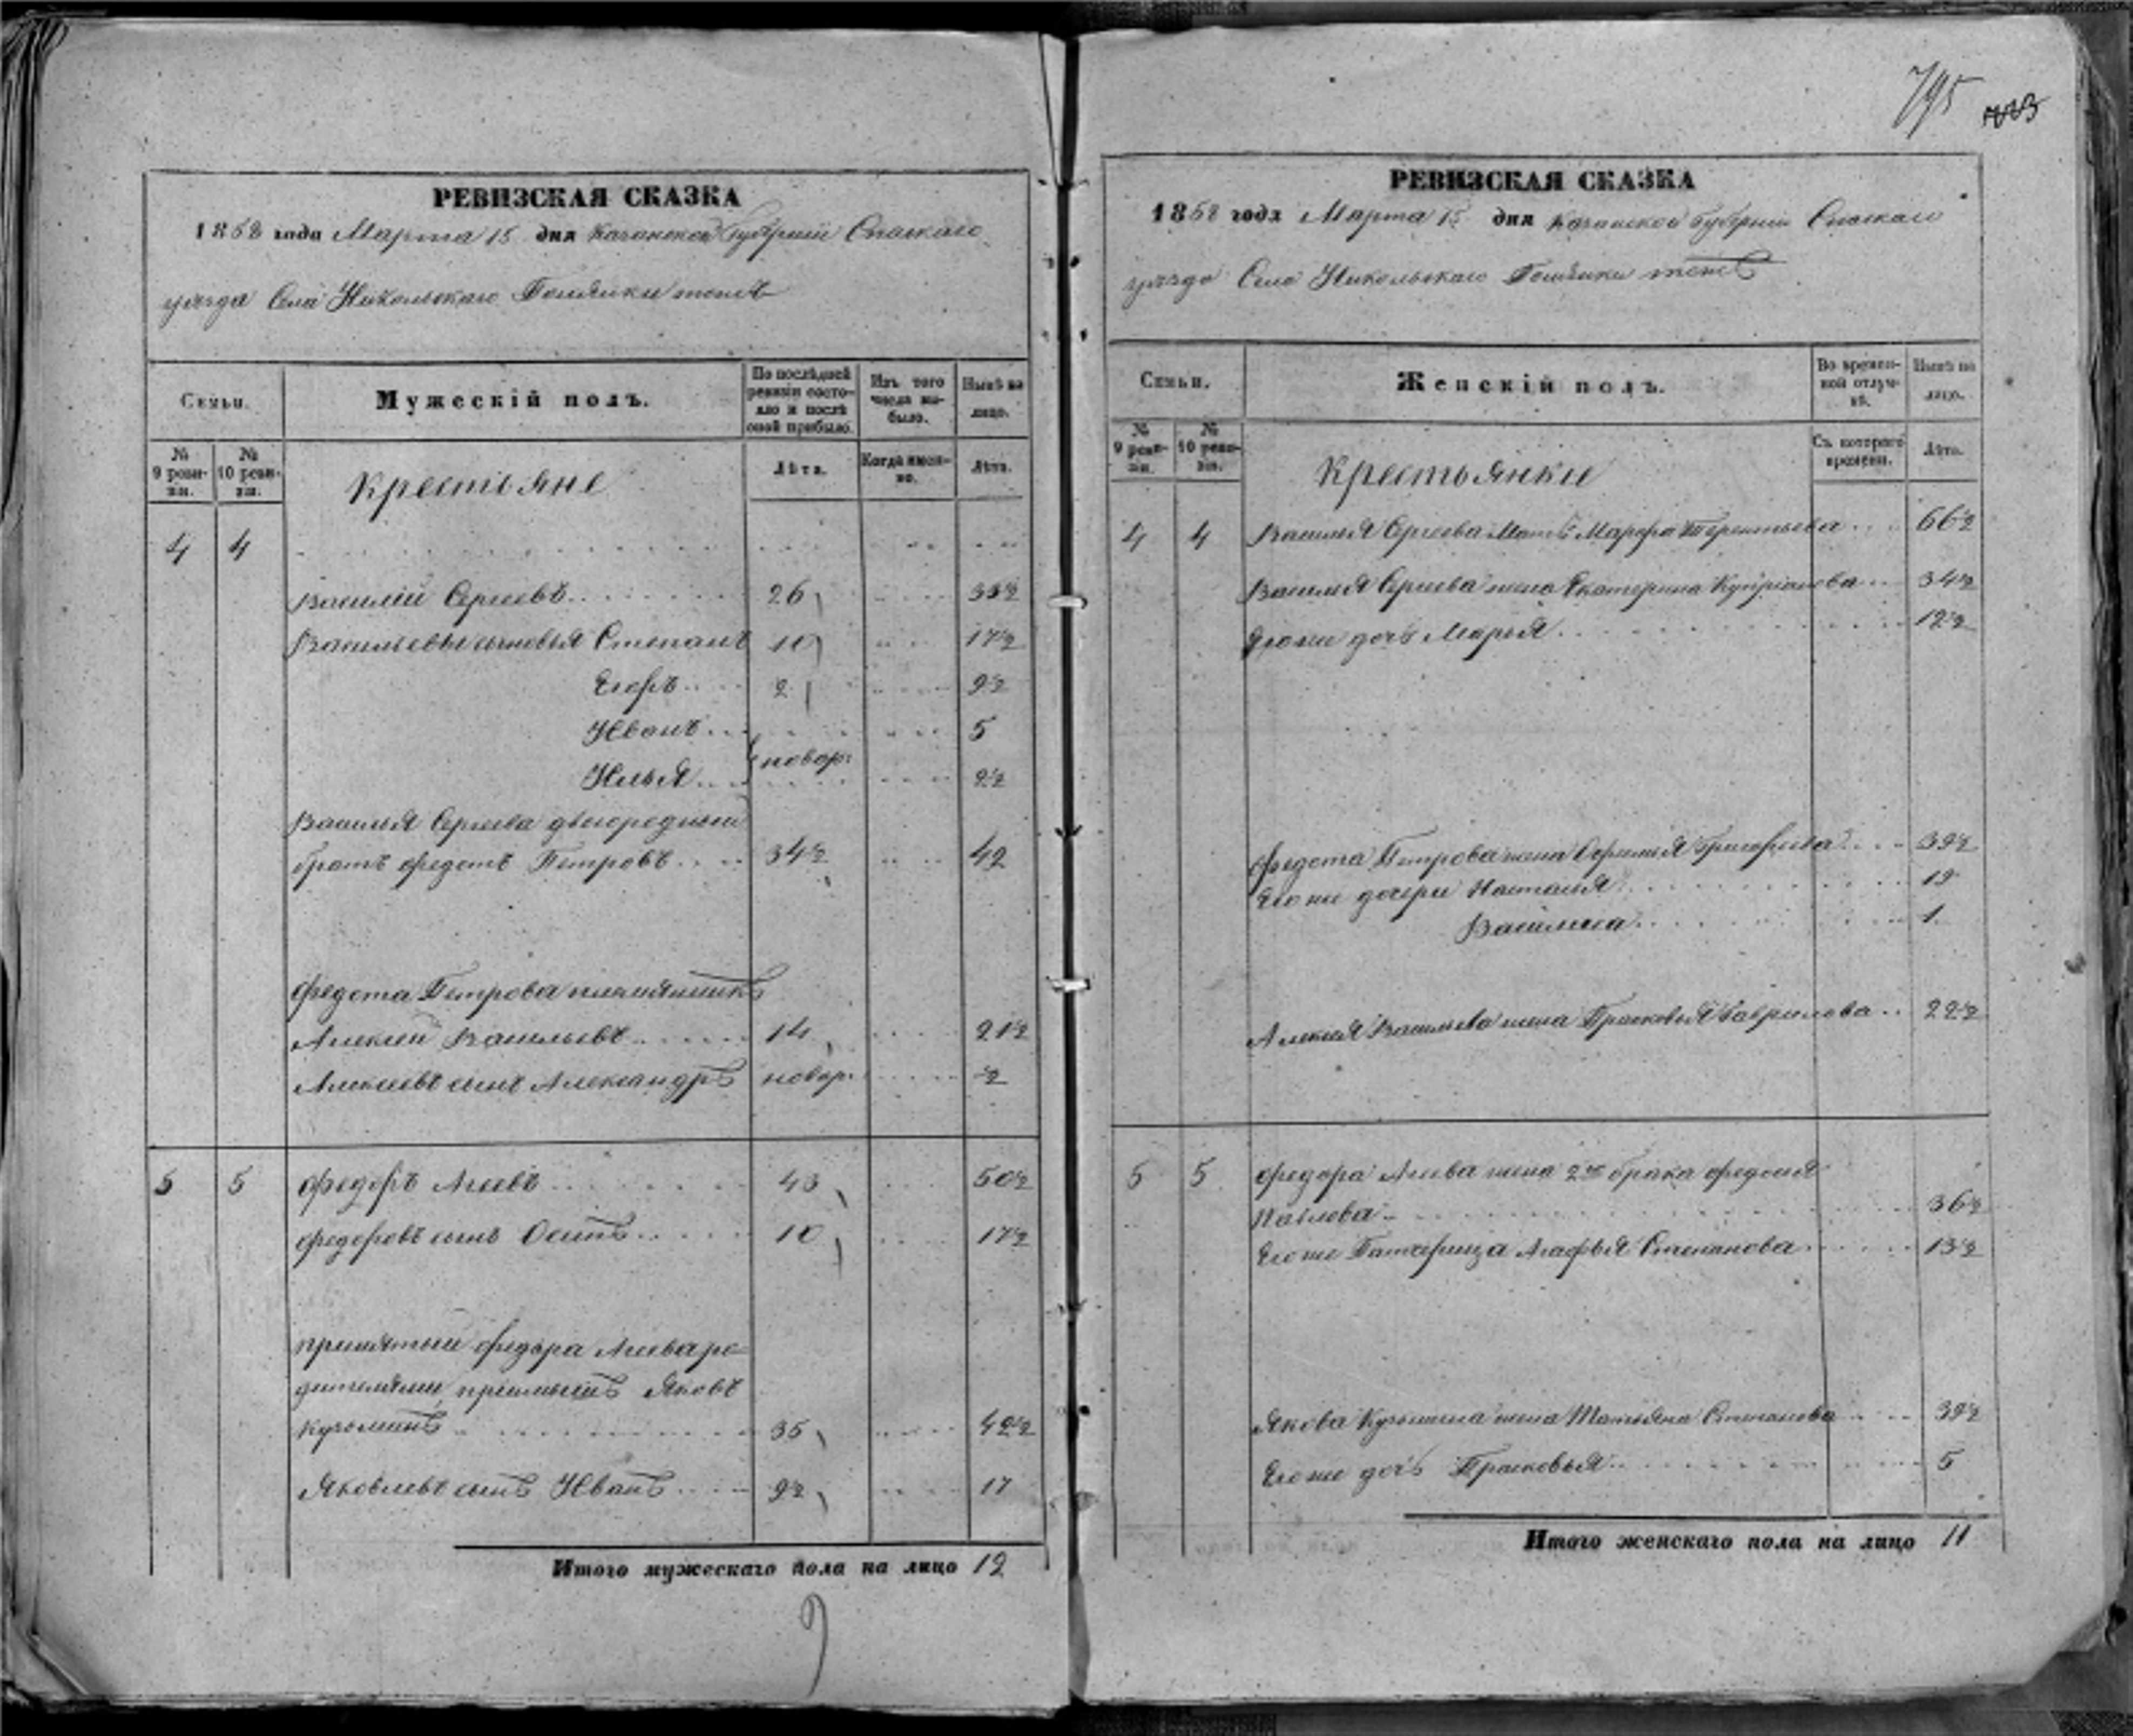 795
РЕВИЗСКАЯ СКАЗКА
1858 года Марта 15 дня Казанской Губернии Спаскаго
уезда Села Никольскаго
Семьи.
Мужескій полъ.
По послѣдней ревизіи состояло и послѣ оной прибыло.
Изъ того числа выбыло.
Нынѣ на лицо.
№ 9 ревизіи.
№ 10 ревизіи.
Крестьяне
Лѣта.
Когда именно.
Лѣта.
4 4
Василій Сергеевъ 26 33½
Васильевы сыновья Степанъ 10 17½
Егоръ 2 9½
Иванъ 5
новор:
Илья 2½
Василья Сергеева двоюродный
братъ Федотъ Петровъ 34½ 42
Федота Петрова племянникъ
Алексей Васильевъ 14 21½
Алексеевъ сынъ Александръ новор. ½
5 5 Федоръ Агеевъ 43 50½
Федоровъ сынъ Осипъ 10 17½
принятый Федора Агеева ро-
дителями пріемышъ Яковъ
Кузьминъ 35 42½
Яковлевъ сынъ Иванъ 9½ 17
Итого мужескаго пола на лицо 12
РЕВИЗСКАЯ СКАЗКА
1858 года Марта 15 дня Казанской Губернии Спаскаго
уезда Села Никольскаго
Семьи.
Женскій полъ.
Во временной отлучкѣ.
Нынѣ на лицо.
№ 9 ревизіи.
№ 10 ревизіи.
Крестьянки
Съ котораго времени.
Лѣта.
4 4 Василья Сергеева Мать Марфа Терентьева 66½
Василья Сергеева жена Екатерина Купріанова 34½
Его же дочь Марья 12½
Федота Петрова жена Григорьева 39½
Его же дочери Наталья 19
Василиса 1
Алексея Васильева жена Прасковья Гаврилова 22½
5 5 Федора Агеева жена 2го брака Федосья
Павлова 36½
Его же Падчерица Агафья Степанова 13½
Якова Кузьмина жена Татьяна Степанова 39½
Его же дочь Прасковья 5
Итого женскаго пола на лицо 11